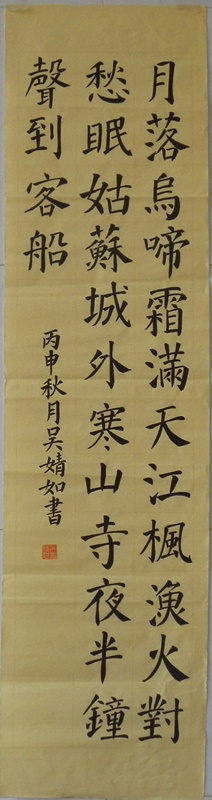 月落烏啼霜滿天江楓漁火對
愁眠姑蘇城外寒山寺夜半鐘
聲到客船
丙申秋月吴婧如書